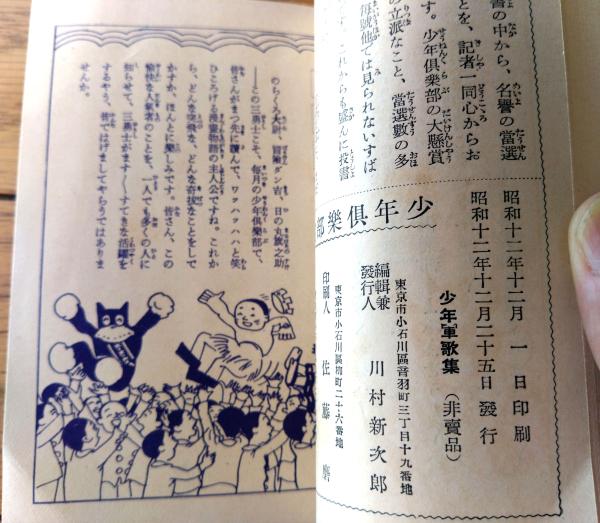 書の中から、名譽の當選
とを、記者一同心からお
す。少年俱樂部の大懸賞
の立派なこと、當選數の多
每號他では見られないすば
これからも盛んに投書
昭和十二年十二月一日印刷
昭和十二年十二月二十五日發行
少年軍歌集(非賣品)
東京市小石川區音羽町三丁目十九番地
編輯兼發行人 川村新次郎
東京市小石川區柳町二十六番地
印刷人 佐藤
少年俱樂部
のらくろ大尉、冒險ダン吉、日の丸旗之助
――この三勇士こそ、每月の少年俱樂部で、
皆さんがまつ先に讀んで、ワッハッハハと笑
ひころげる漫畫物語の主人公ですね。これか
ら、どんな突飛な、どんな奇拔なことをして
かすか、ほんとに樂しみです。皆さん、この
愉快な人氣者のことを、一人でも多くの人に
知らせて、三勇士がます〱すてきな活躍を
するやう、皆ではげましてやらうではありま
せんか。